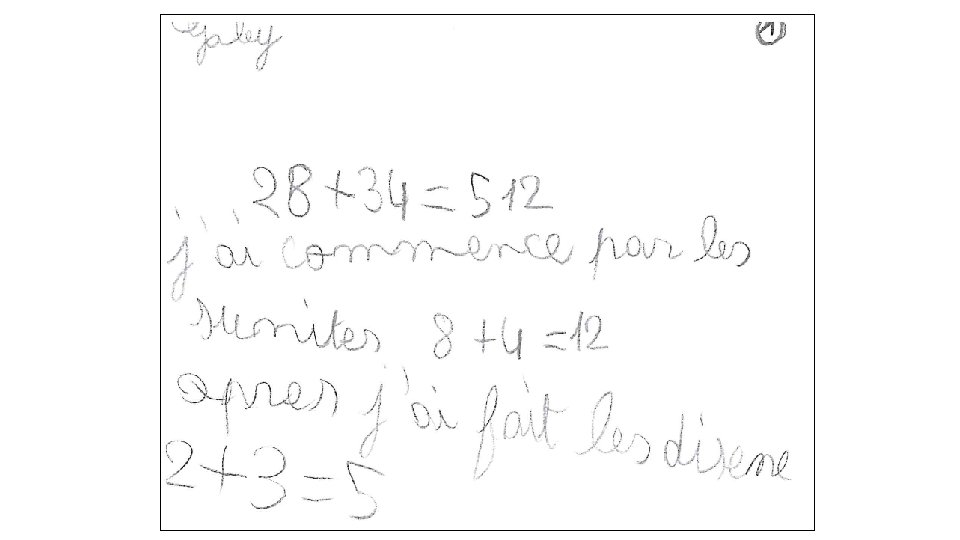 ①
28+34=512
j'ai commence par les
sunites 8+4=12
apres j'ai fait les disene
2+3=5